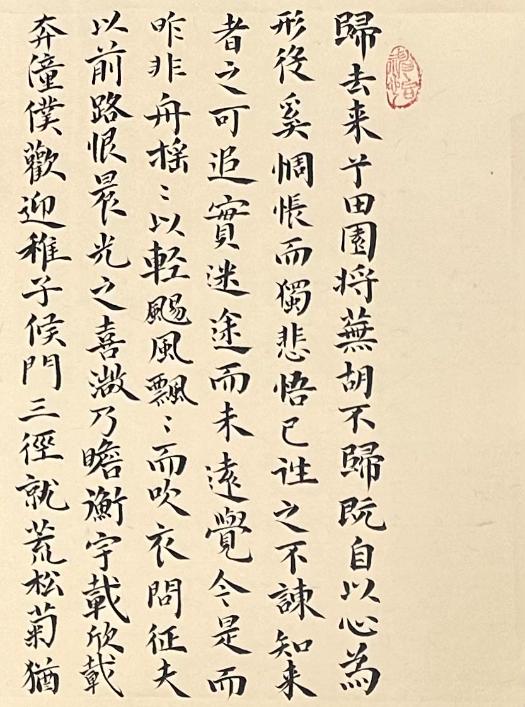 歸去来兮田園将蕪胡不歸既自以心為
形役奚惆悵而獨悲悟已往之不諫知来
者之可追實迷途而未遠覺今是而
昨非舟揺〻以軽颺風飄〻而吹衣問征夫
以前路恨晨光之喜微乃瞻衡宇載欣載
奔僮僕歡迎稚子候門三徑就荒松菊猶